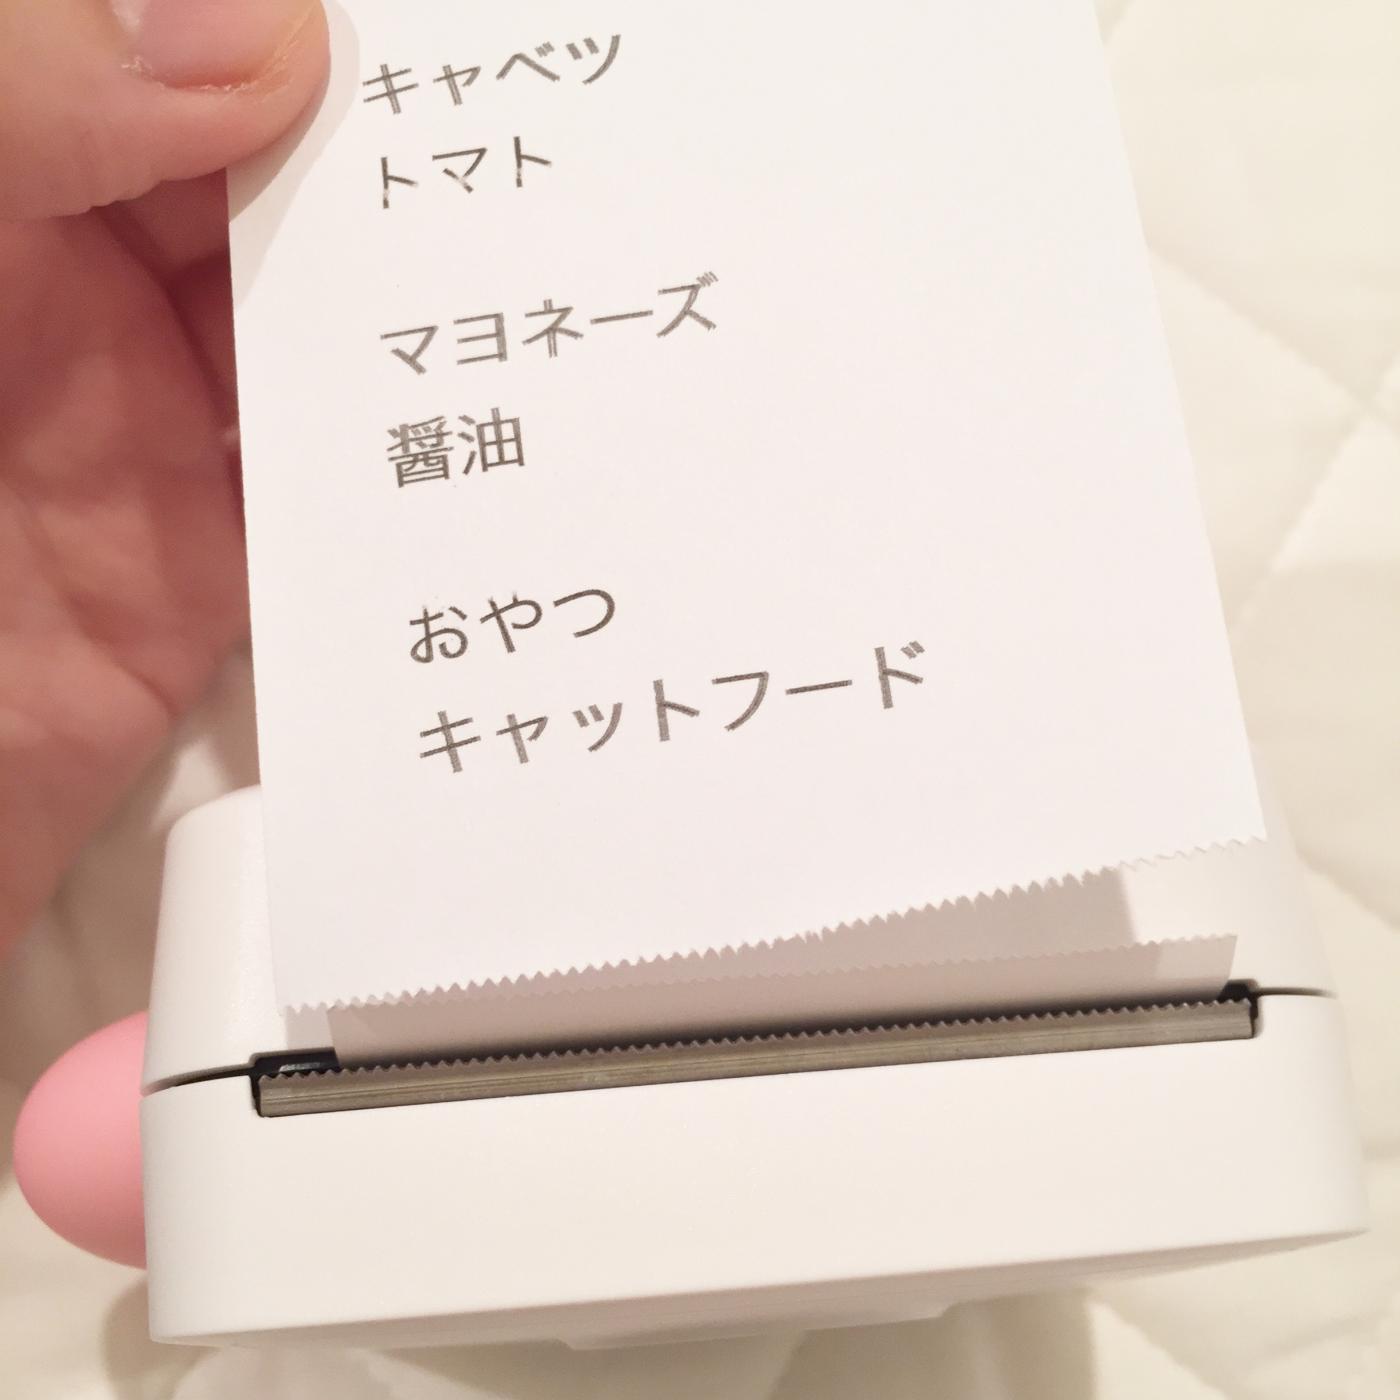 キャベツ
トマト
マヨネーズ
醤油
おやつ
キャットフード